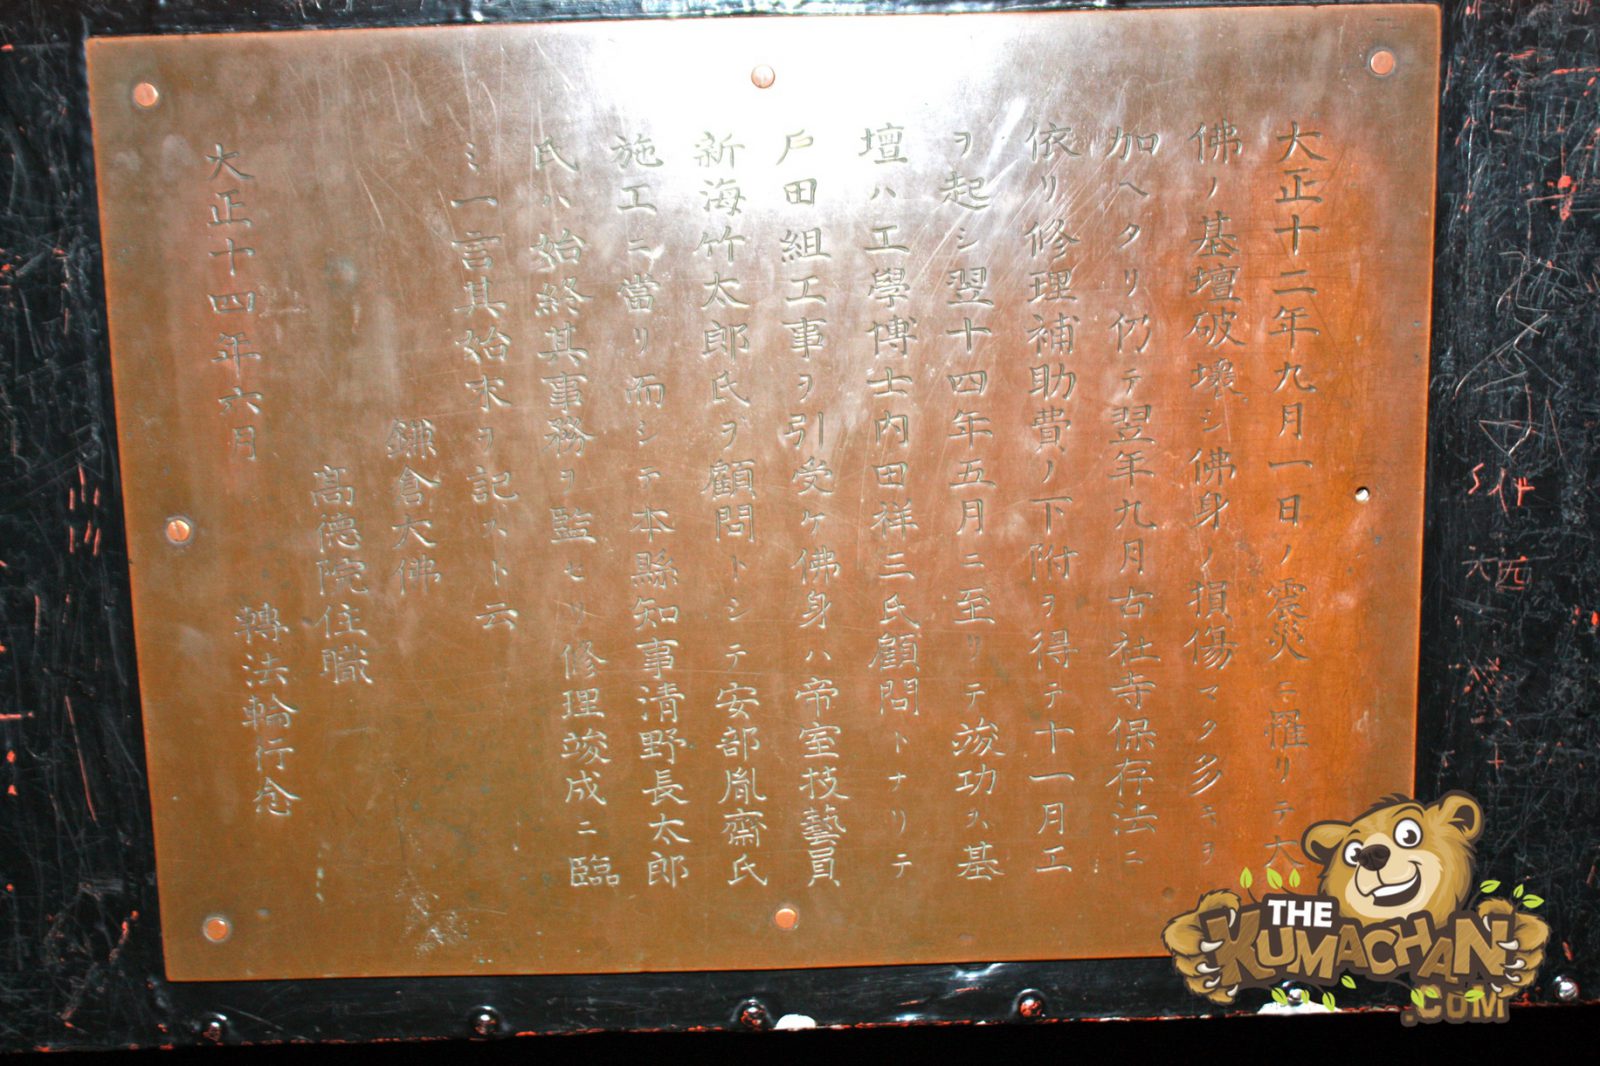 大正十二年九月一日ノ震災ニ罹リテ大
佛ノ基壇破壊シ佛身ノ損傷マタ多キヲ
加ヘタリ仍テ翌年九月古社寺保存法ニ
依リ修理補助費ノ下附ヲ得テ十一月工
ヲ起シ翌十四年五月ニ至リテ竣功ス基
壇ハ工學博士内田祥三氏顧問トナリテ
戸田組工事ヲ引受ケ佛身ハ帝室技藝員
新海竹太郎氏ヲ顧問トシテ安部胤齋氏
施工ニ當リ而シテ本縣知事清野長太郎
氏ハ始終其事務ヲ監セリ修理竣成ニ臨
ミ一言其始末ヲ記スト云
鎌倉大佛
高德院住職
轉法輪行念
大正十四年六月
THE
KUMACHAN
.COM